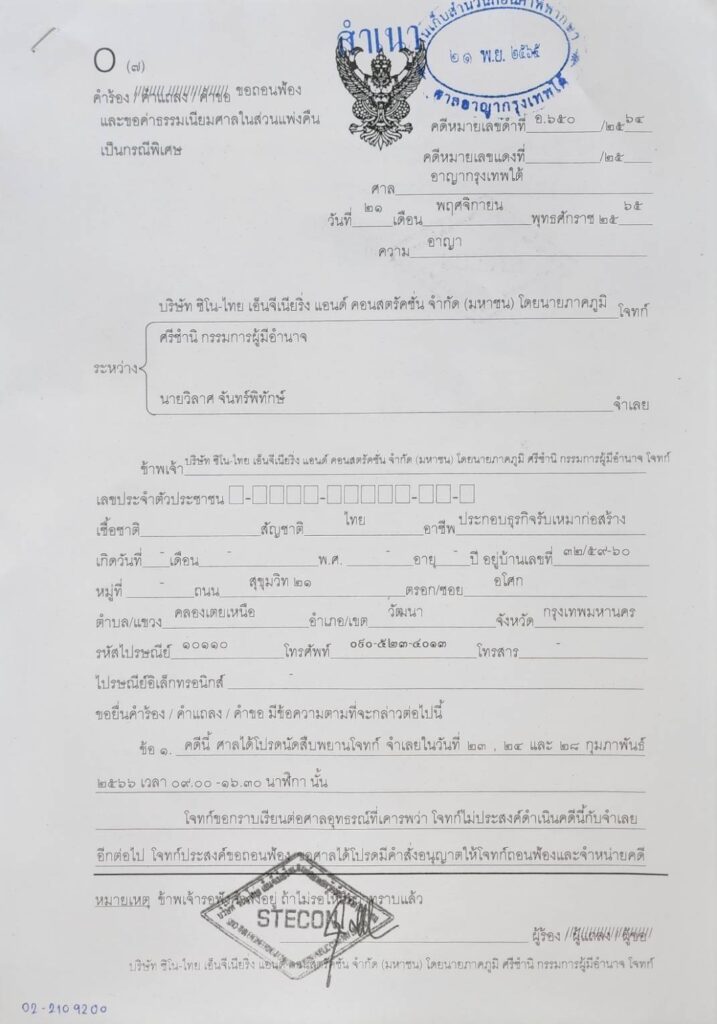 สำเนา
๒๑ พ.ย. ๒๕๖๕
ศาลอาญากรุงเทพใต้
O (๗)
คำร้อง / คำแถลง / คำขอ ขอถอนฟ้อง
และขอค่าธรรมเนียมศาลในส่วนแพ่งคืน
เป็นกรณีพิเศษ
คดีหมายเลขดำที่ อ.๖๕๐ /๒๕ ๖๔
คดีหมายเลขแดงที่ /๒๕
ศาล อาญากรุงเทพใต้
วันที่ ๒๑ เดือน พฤศจิกายน พุทธศักราช ๒๕ ๖๕
ความ อาญา
บริษัท ซิโน-ไทย เอ็นจีเนียริ่ง แอนด์ คอนสตรัคชั่น จำกัด (มหาชน) โดยนายภาคภูมิ โจทก์
ศรีชำนิ กรรมการผู้มีอำนาจ
ระหว่าง
นายวิลาศ จันทร์พิทักษ์ จำเลย
ข้าพเจ้า บริษัท ซิโน-ไทย เอ็นจีเนียริ่ง แอนด์ คอนสตรัคชั่น จำกัด (มหาชน) โดยนายภาคภูมิ ศรีชำนิ กรรมการผู้มีอำนาจ โจทก์
เลขประจำตัวประชาชน
เชื้อชาติ สัญชาติ ไทย อาชีพ ประกอบธุรกิจรับเหมาก่อสร้าง
เกิดวันที่ - เดือน - พ.ศ. - อายุ - ปี อยู่บ้านเลขที่ ๓๒/๕๙-๖๐
หมู่ที่ - ถนน สุขุมวิท ๒๑ ตรอก/ซอย อโศก
ตำบล/แขวง คลองเตยเหนือ อำเภอ/เขต วัฒนา จังหวัด กรุงเทพมหานคร
รหัสไปรษณีย์ ๑๐๑๑๐ โทรศัพท์ ๐๙๐-๕๒๓-๔๐๑๓ โทรสาร -
ไปรษณีย์อิเล็กทรอนิกส์ -
ขอยื่นคำร้อง / คำแถลง / คำขอ มีข้อความตามที่จะกล่าวต่อไปนี้
ข้อ ๑. คดีนี้ ศาลได้โปรดนัดสืบพยานโจทก์ จำเลยในวันที่ ๒๓ , ๒๔ และ ๒๘ กุมภาพันธ์
๒๕๖๖ เวลา ๐๙.๐๐ -๑๖.๓๐ นาฬิกา นั้น
โจทก์ขอกราบเรียนต่อศาลอุทธรณ์ที่เคารพว่า โจทก์ไม่ประสงค์ดำเนินคดีนี้กับจำเลย
อีกต่อไป โจทก์ประสงค์ขอถอนฟ้อง ขอศาลได้โปรดมีคำสั่งอนุญาตให้โจทก์ถอนฟ้องและจำหน่ายคดี
หมายเหตุ ข้าพเจ้ารอฟังคำสั่งอยู่ ถ้าไม่รอให้ถือว่าทราบแล้ว
STECON
ผู้ร้อง / ผู้แถลง / ผู้ขอ
บริษัท ซิโน-ไทย เอ็นจีเนียริ่ง แอนด์ คอนสตรัคชั่น จำกัด (มหาชน) โดยนายภาคภูมิ ศรีชำนิ กรรมการผู้มีอำนาจ โจทก์
02-210 9200